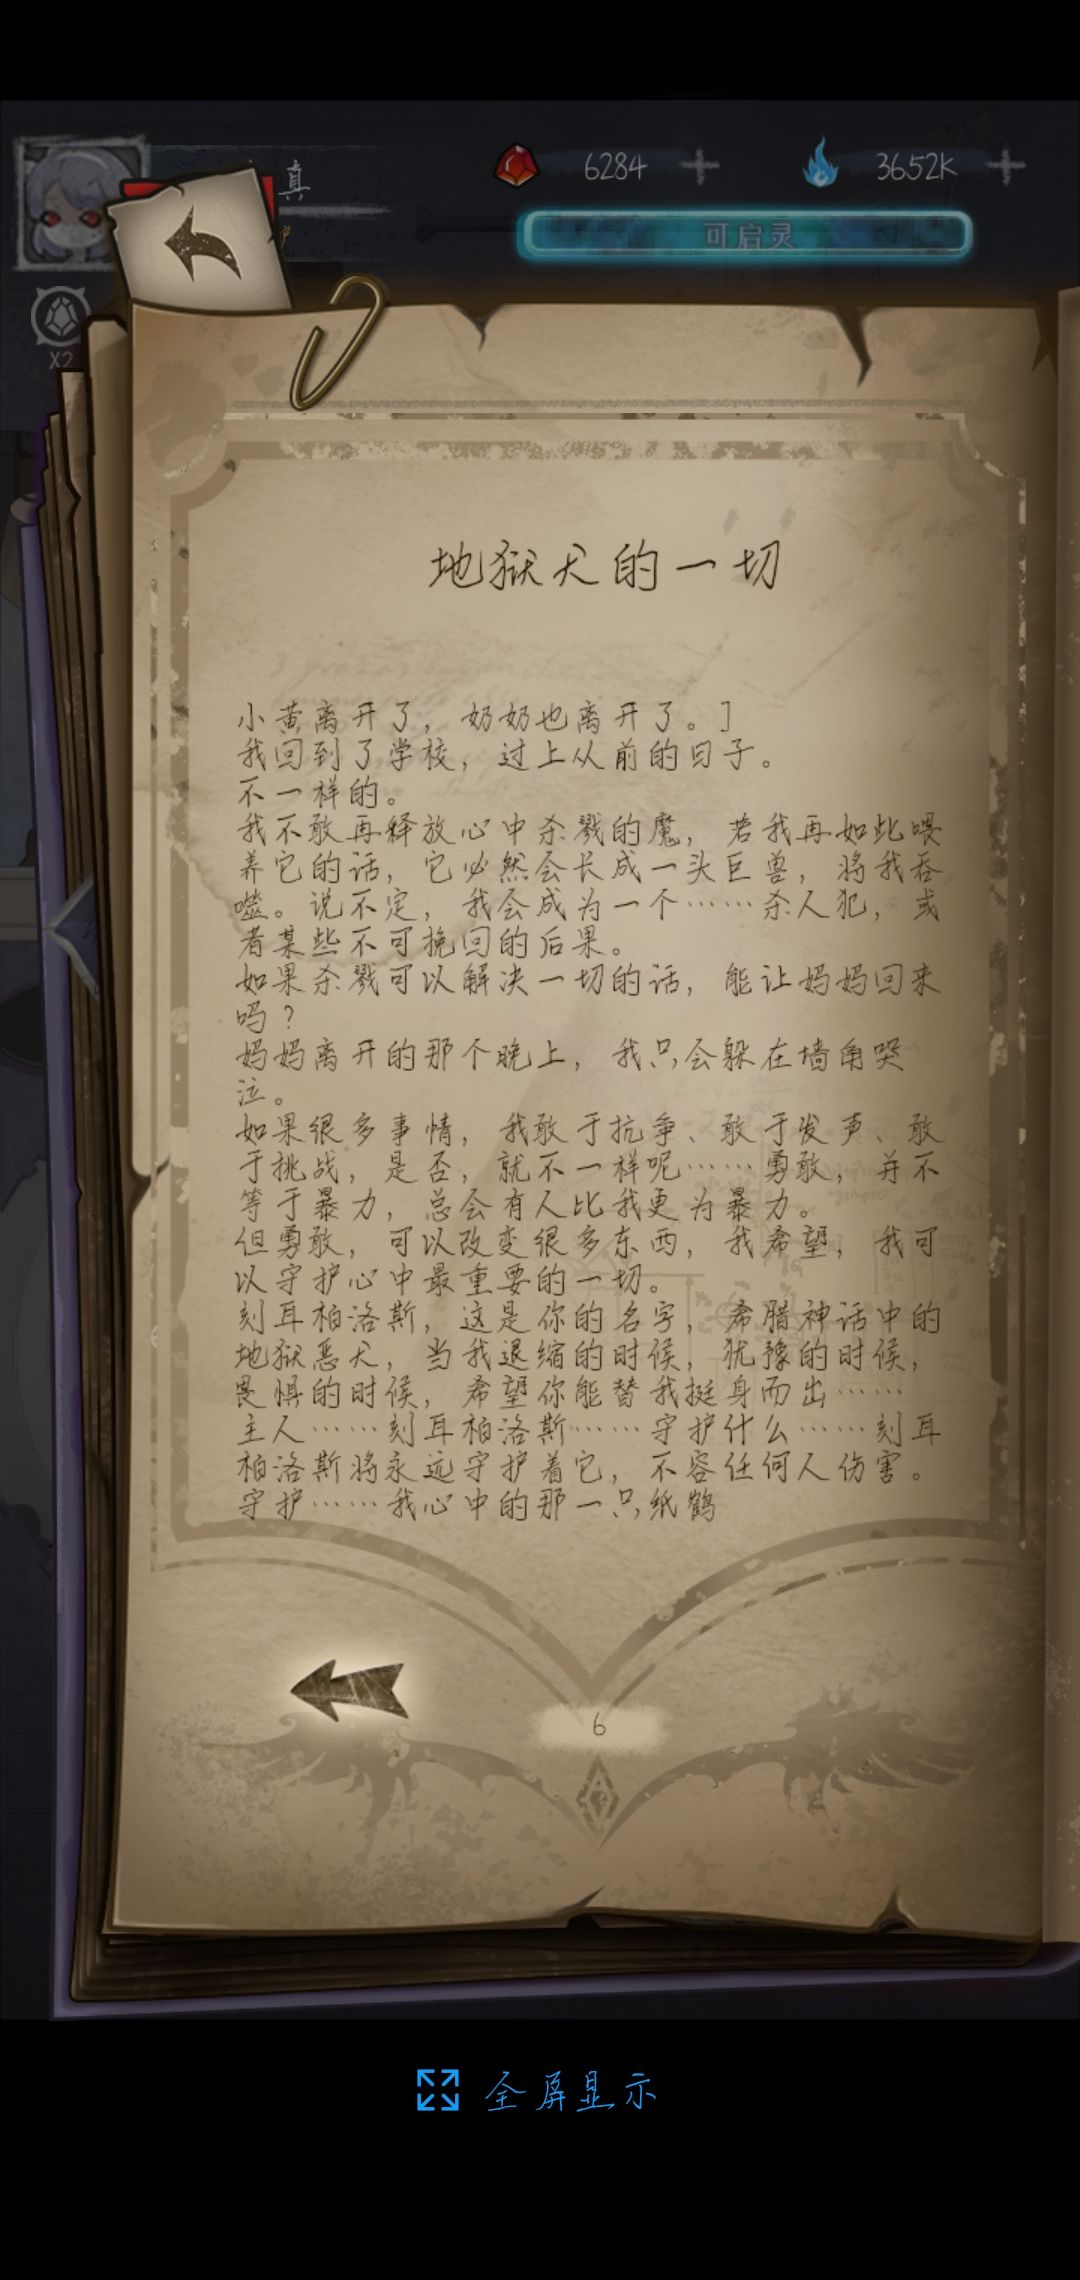 真
6284
3652K
可启灵
X2
地狱犬的一切
小黄离开了，奶奶也离开了。]
我回到了学校，过上从前的日子。
不一样的。
我不敢再释放心中杀戮的魔，若我再如此喂
养它的话，它必然会长成一头巨兽，将我吞
噬。说不定，我会成为一个……杀人犯，或
者某些不可挽回的后果。
如果杀戮可以解决一切的话，能让妈妈回来
吗？
妈妈离开的那个晚上，我只会躲在墙角哭
泣。
如果很多事情，我敢于抗争、敢于发声、敢
于挑战，是否，就不一样呢……勇敢，并不
等于暴力，总会有人比我更为暴力。
但勇敢，可以改变很多东西，我希望，我可
以守护心中最重要的一切。
刻耳柏洛斯，这是你的名字，希腊神话中的
地狱恶犬，当我退缩的时候，犹豫的时候，
畏惧的时候，希望你能替我挺身而出……
主人……刻耳柏洛斯……守护什么……刻耳
柏洛斯将永远守护着它，不容任何人伤害。
守护……我心中的那一只纸鹤
6
全屏显示